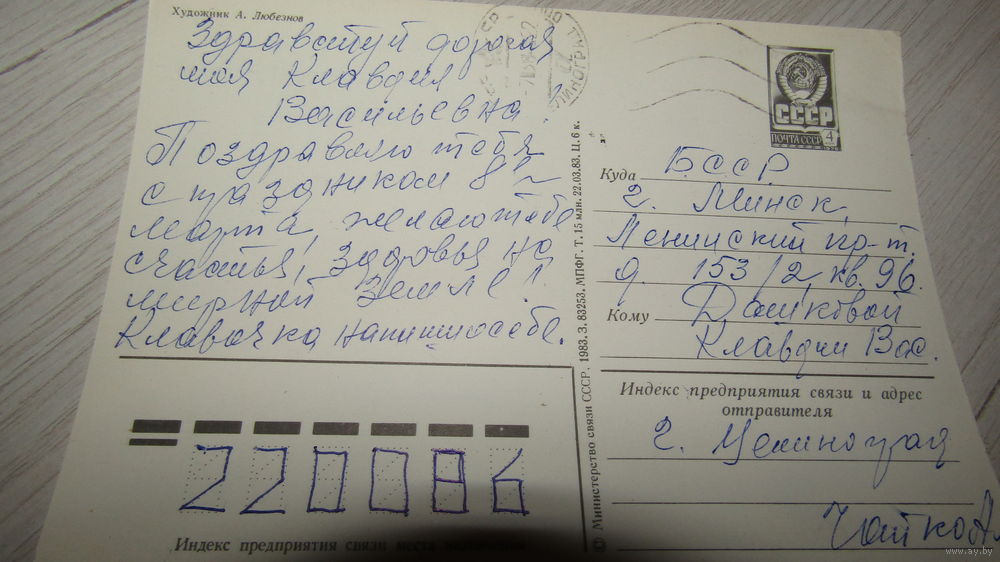 Художник А. Любезнов
Здравствуй дорогая
моя Клавдия
Васильевна!
Поздравляю тебя
с праздником 8го
марта, желаю тебе
счастья, здоровья на
мирной Земле!
Клавочка напиши о себе.
220086
Индекс предприятия связи места назначения
© Министерство связи СССР, 1983. З. 83253. МПФГ. Т. 15 млн. 22.03.83. Ц. 6 к.
СССР
ПОЧТА СССР 4
Куда БССР
г. Минск,
Ленинский пр-т.
д. 153/2, кв. 96.
Кому Дошковой
Клавдии Вас.
Индекс предприятия связи и адрес
отправителя
г. Целиноград
Чайко А.
www.ay.by